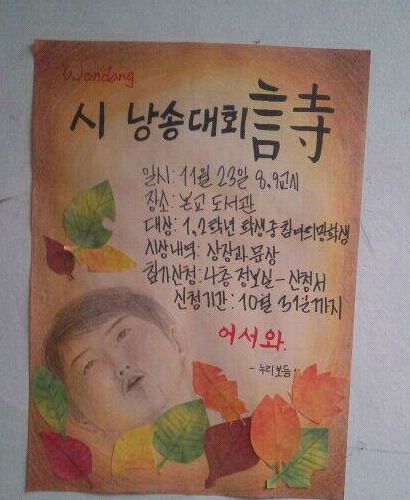 Wondang
시 낭송대회 詩
일시: 11월 23일 8,9교시
장소: 본교 도서관
대상: 1,2학년 학생중 참여희망학생
시상내역: 상장과 문상
참가신청: 4층 정보실 - 신청서
신청기간: 10월 31일까지
어서와.
- 누리보듬